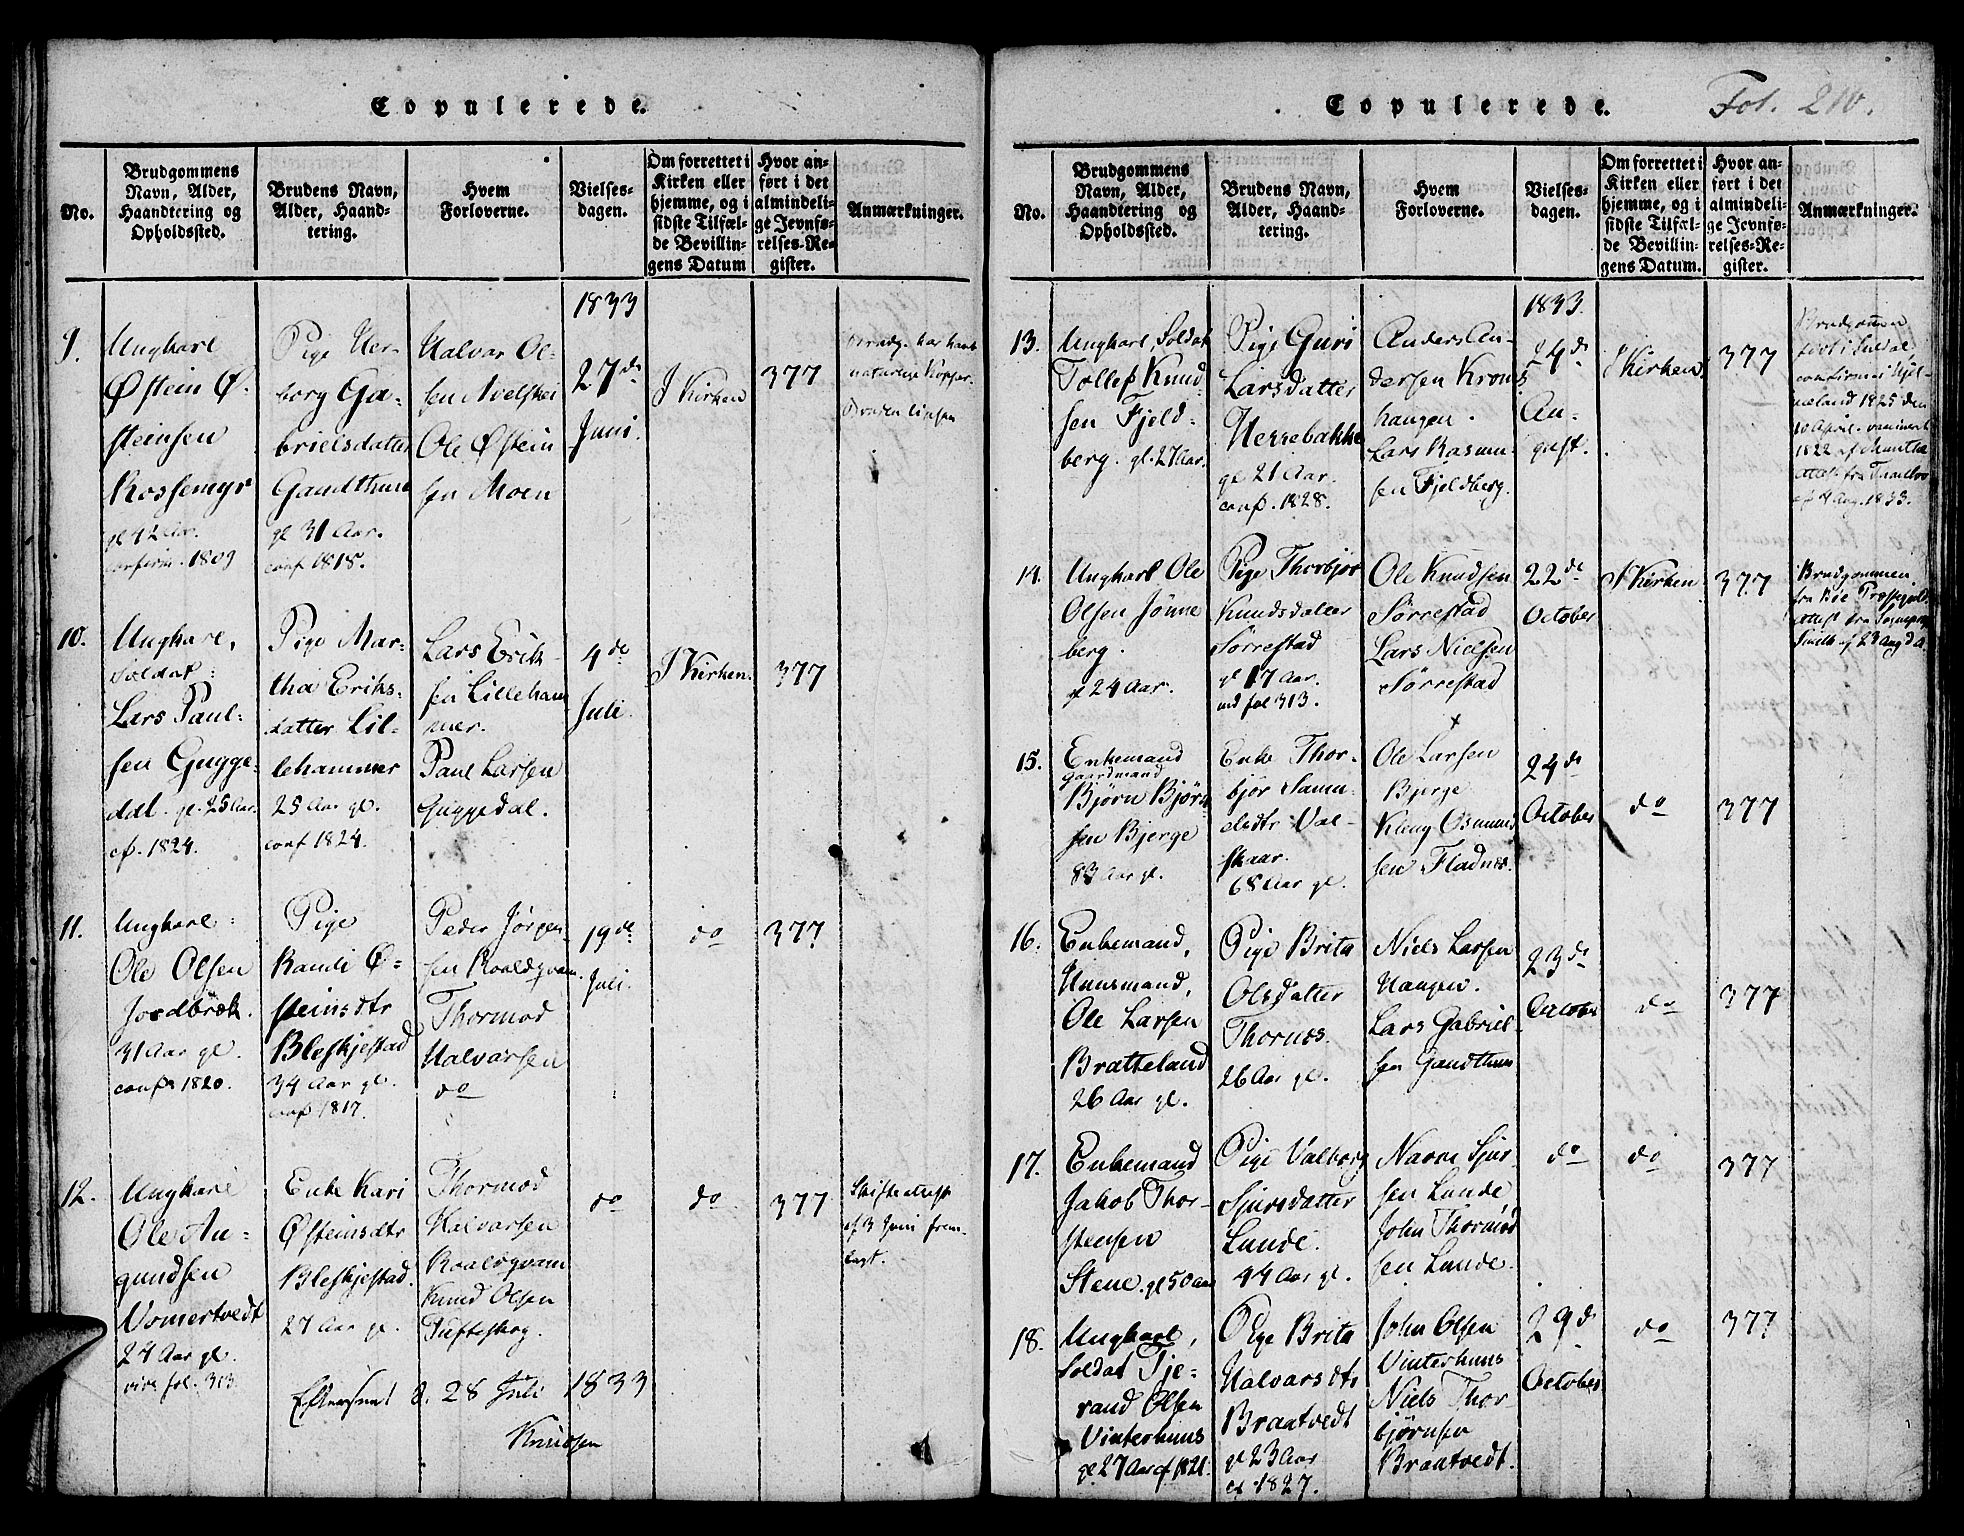 Copulerede.
No.
Brudgommens
Navn, Alder,
Haandtering og
Opholdssted.
Brudens Navn,
Alder, Haand-
tering.
Hvem
Forloverne.
Vielses-
dagen.
Om forrettet i
Kirken eller
hjemme, og i
sidste Tilfæl-
de Bevillin-
gens Datum
Hvor an-
ført i det
almindeli-
ge Jevnfø-
relses-Re-
gister.
Anmærkninger.
1833
9.
Ungkarl
Østein Ø-
steinsen
Rossemyr
gl. 42 Aar.
confirm. 1809
Pige Her-
borg Ga-
brielsdatter
Gandthun
gl 31 Aar.
conf 1818.
Halvar Ol-
sen
Ole Østein
sen Moen
27de
Juni.
I Kirken
377
Brudg. har havt
naturlige Kopper.
Bruden ligesaa
10.
Ungkarl,
Soldat:
Lars Paul-
sen Gugge-
dal. gl. 25 Aar.
cf. 1824.
Pige Mar-
tha Eriks-
datter Lil-
lehammer
25 Aar gl.
conf 1824.
Lars Erik-
sen Lilleham
mer.
Paul Larsen
Guggedal.
4de
Juli.
I Kirken.
377
11.
Ungkarl:
Ole Olsen
Jordbræk.
31 Aar gl.
conf. 1820.
Pige
Randi Ø-
steinsdtr
Bleskjestad
34 Aar gl.
conf 1817.
Peder Jørgen-
sen Roaldqvam.
Thormod
Halvarsen
do
19de
Juli.
do
377
12.
Ungkarl
Ole Au-
gundsen
Vomertvedt
24 Aar gl.
vide fol. 313.
Enke Kari
Østeinsdtr
Bleskjestad.
27 Aar gl.
Thormod
Halvarsen
Roaldqvam
Knud Olsen
Tufteskog.
do
do
377
Skifteattest
af 3 Juni frem-
lagt.
Efterseet d. 28 Juli 1833
Knudsen
Copulerede.
Fol. 210.
No.
Brudgommens
Navn, Alder,
Haandtering og
Opholdssted.
Brudens Navn,
Alder, Haand-
tering.
Hvem
Forloverne.
Vielses-
dagen.
Om forrettet i
Kirken eller
hjemme, og i
sidste Tilfæl-
de Bevillin-
gens Datum.
Hvor an-
ført i det
almindeli-
ge Jevnfø-
relses-Re-
gister.
Anmærkninger.
1833.
13.
Ungkarl Soldat
Tollef Knud-
sen Fjeld-
berg. gl. 27 Aar.
Pige Guri
Larsdatter
Herrebakke
gl 21 Aar.
conf. 1828.
Anders An-
dersen Krons
haugen.
Lars Rasmu-
sen Fjeldberg.
24de
Au-
gust.
I Kirken.
377
Brudgommen
født i Suldal
confirmeret Hjel-
meland 1825 den
10 April. vaccineret
1822 af
Attest fra
af 4 Aug. 1833.
14.
Ungkarl Ole
Olsen Jønne
berg.
gl 24 Aar.
Pige Thorbjør
Knudsdatter
Sørrestad
gl 17 Aar.
vid fol 313.
Ole Knudsen
Sørrestad
Lars Nielsen
Sørrestad
22de
October
I Kirken
377
Brudgommen
fra Bøe Præstegield
Attest fra Sognepræst
Smith af 23 Aug d. A.
15.
Enkemand
Gaardmand
Bjørn Bjørn
sen Bjerge
83 Aar gl.
Enke Thor-
bjør Samu-
elsdtr Val-
skaar.
68 Aar gl.
Ole Larsen
Bjerge
Klaug Osmund
sen Fladnes.
24de
October
do
377
16.
Enkemand,
Huusmand,
Ole Larsen
Bratteland
26 Aar gl.
Pige Brita
Olsdatter
Thornæs.
26 Aar gl.
Niels Larsen
Haugen.
Lars Gabriel-
sen Gandthun
23de
October
do
377
17.
Enkemand
Jakob Thor-
stensen
Stene. gl 50 aar
Pige Valborg
Sjursdatter
Lunde.
44 Aar gl.
Narve Sjur-
sen Lunde
John Thormod
sen Lunde.
do
do
377
18.
Ungkarl,
Soldat Tje-
rand Olsen
Vinterhuus
gl 27 Aar cf 1821.
Pige Brita
Halvarsdtr
Braatvedt
gl 23 Aar
cf. 1827.
John Olsen
Vinterhuus
Niels Thor
bjørnsen
Braatvedt.
29de
October
do
377